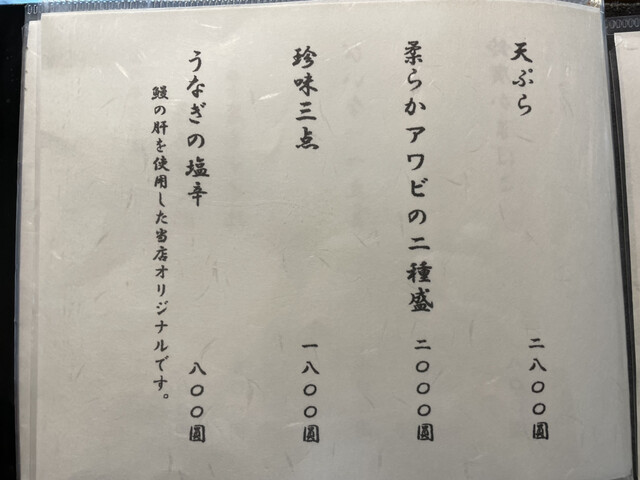 天ぷら 二八〇〇圓
柔らかアワビの二種盛 二〇〇〇圓
珍味三点 一八〇〇圓
うなぎの塩辛 八〇〇圓
鰻の肝を使用した当店オリジナルです。